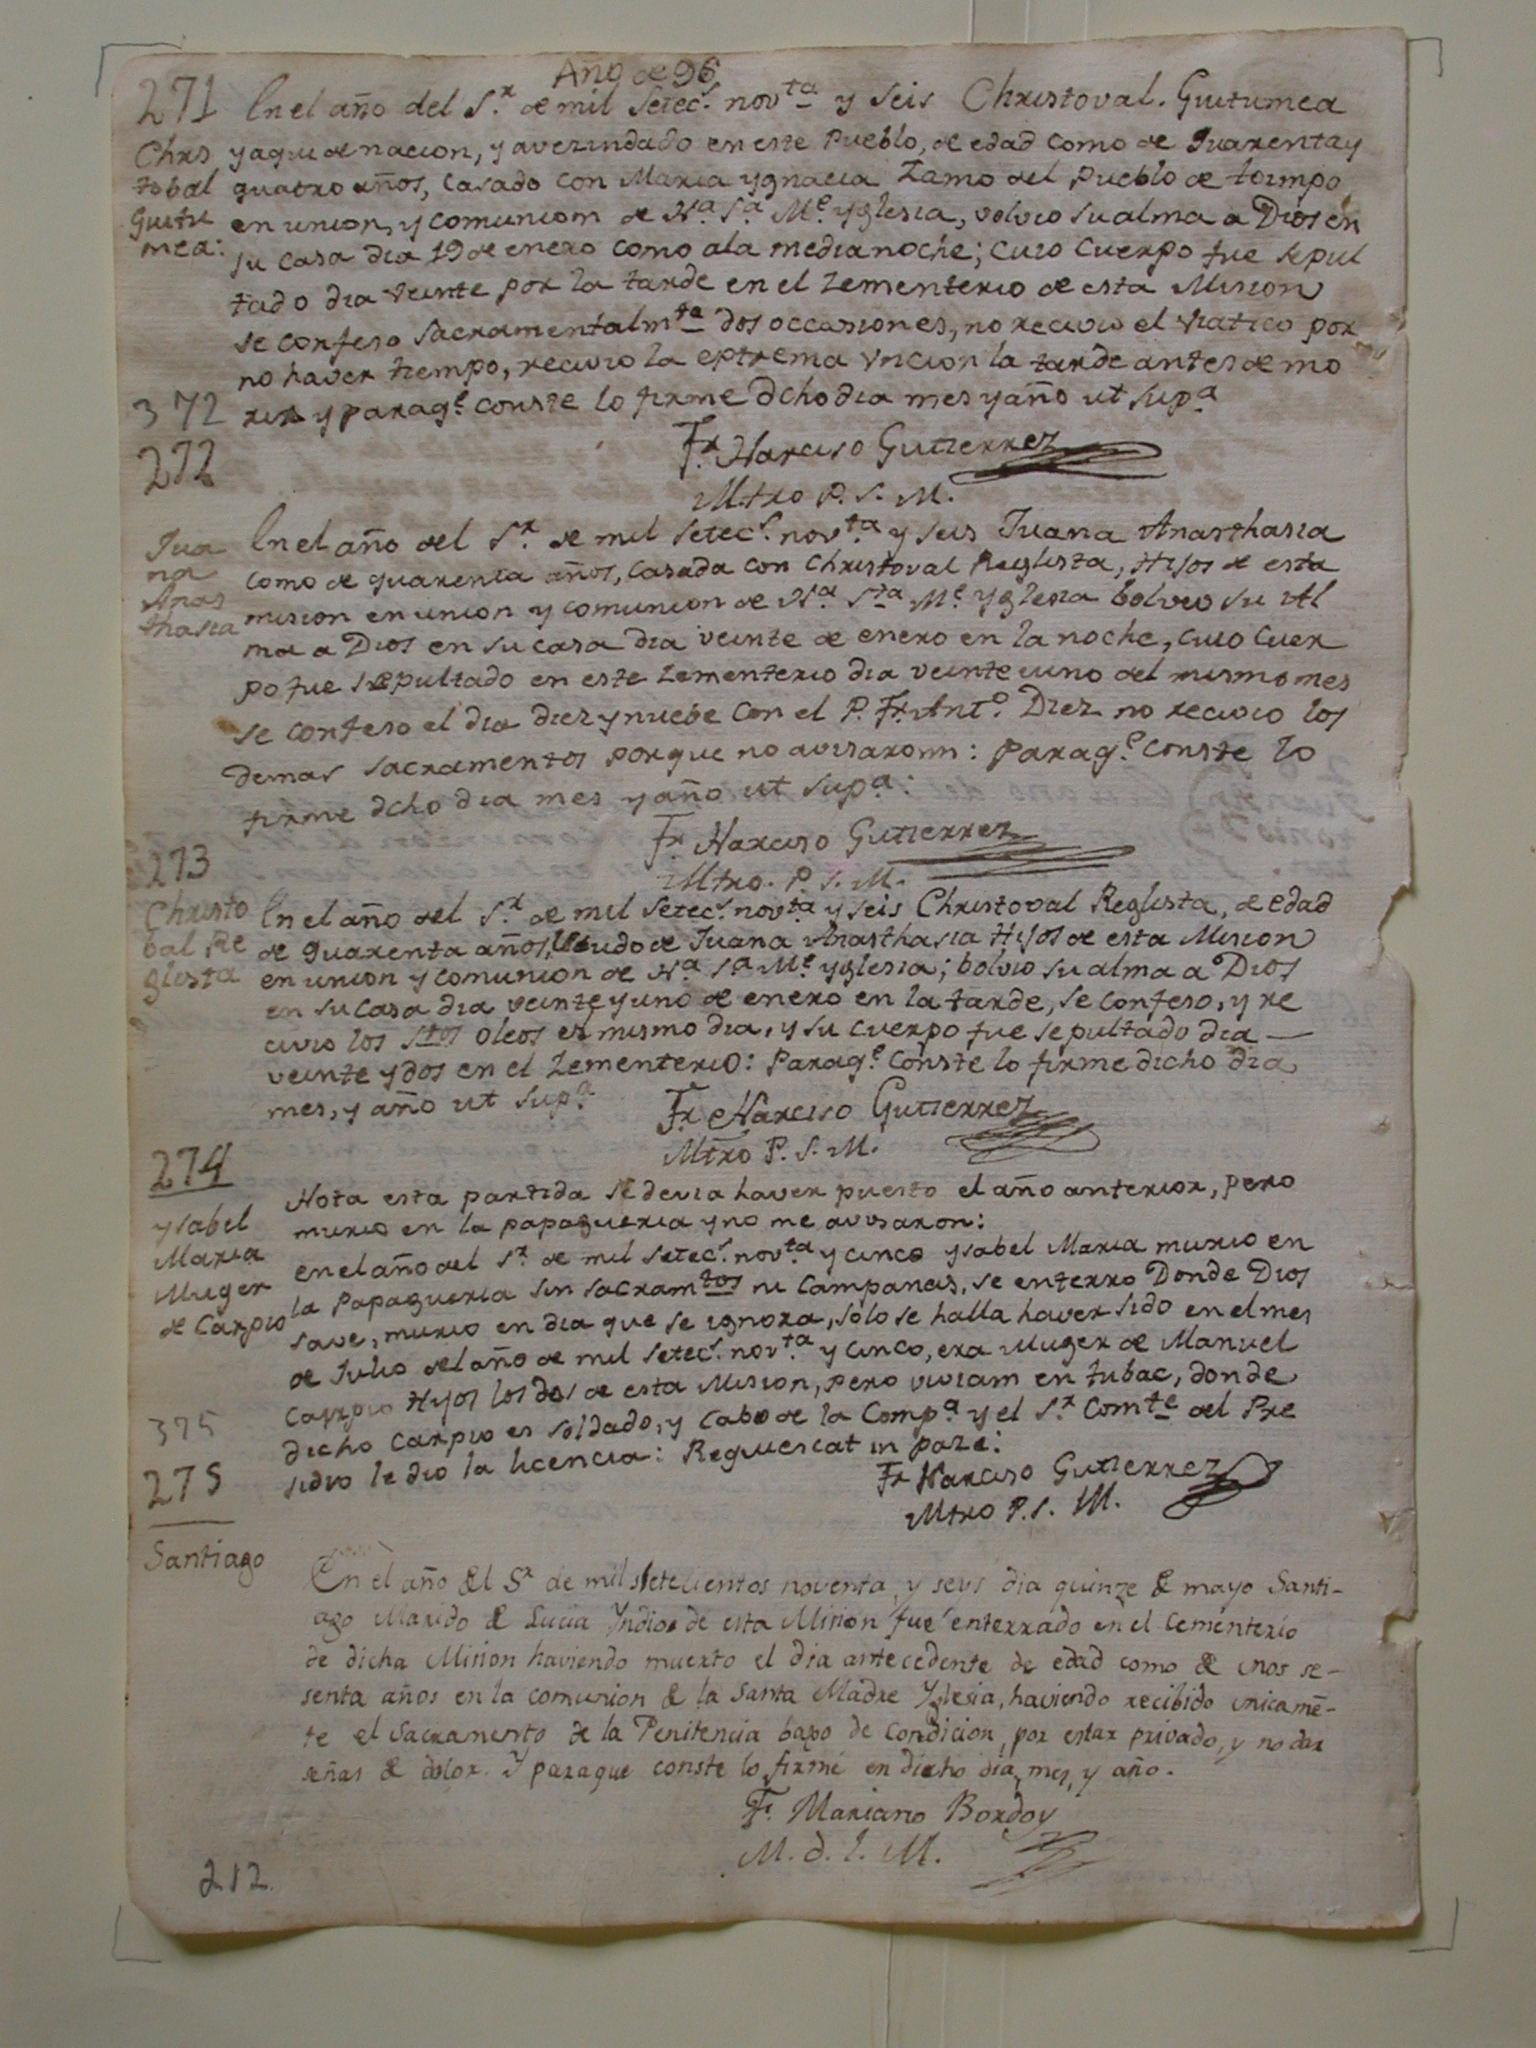 Año de 96
271
En el año del S.r de mil Setec.s nov.ta y seis Christoval. Guitumea
Chris
tobal
Guitu
mea:
yaqui de nacion, y avezindado en este Pueblo, de edad como de quarenta y
quatro años, casado con Maria ygnacia Zamo del Pueblo de toimpo
en union, y comunion de N.a S.a M.e yglesia, volvio su alma a Dios en
su casa dia 19 de enero como a la media noche; cuio cuerpo fue sepul
tado dia veinte por la tarde en el zementerio de esta Mision
se confeso sacramentalm.te dos occasiones, no recivio el viatico por
no haver tiempo, recivio la eptrema vncion la tarde antes de mo
372
rir y paraq.e conste lo firme dcho dia mes y año ut sup.a
Fr. Narciso Gutierrez
Mtro P. S. M.
272
Jua
na
Anas
thasia
En el año del S.r de mil setec.s nov.ta y seis Juana Anasthasia
como de quarenta años, casada con Christoval Reglista, Hijos de esta
mision en union y comunion de N.a S.ta M.e yglesia bolvio su Al
ma a Dios en su casa dia veinte de enero en la noche, cuio cuer
po fue sepultado en este zementerio dia veinte iuno del mismo mes
se confeso el dia diez y nuebe con el P. Fr. Ant.o Diez no recivio los
demas sacramentos porque no avisaronn: paraq.e conste lo
firme dcho dia mes y año ut sup.a:
Fr. Narciso Gutierrez
Mtro. P. S. M.
273
Christo
bal Re
glista
En el año del S.r de mil setec.s nov.ta y seis Christoval Reglista, de edad
de quarenta años, viudo de Juana Anasthasia Hijos de esta Mision
en union y comunion de N.a S.a M.e yglesia; bolvio su alma a Dios
en su casa dia veinte y uno de enero en la tarde, se confeso, y re
civio los S.tos oleos el mismo dia, y su cuerpo fue sepultado dia —
veinte y dos en el zementerio: Paraq.e conste lo firme dicho dia
mes, y año ut sup.a
Fr. Narciso Gutierrez
Mtro P. S. M.
274
ysabel
Maria
Muger
de Carpio
Nota esta partida se devia haver puesto el año anterior, pero
murio en la papagueria y no me avisaron:
en el año del S.r de mil setec.s nov.ta y cinco ysabel Maria murio en
la Papagueria sin sacram.tos ni campanas, se enterro Donde Dios
save, murio en dia que se ignora, solo se halla haver sido en el mes
de Julio del año de mil setec.s nov.ta y cinco, era muger de Manuel
Carpio Hijos los dos de esta Mision, pero viviam en tubac, donde
dicho Carpio es soldado, y cabo de la Comp.a y el S.r Com.te del Pre
sidio le dio la licencia: Requiescat in paze:
Fr Narciso Gutierrez
Mtro P. S. M.
375
275
Santiago
En el año del S.r de mil setecientos noventa, y seys dia quinze de mayo Santi-
ago Marido de Lucia Yndios de esta Mision fue enterrado en el cementerio
de dicha Mision haviendo muerto el dia antecedente de edad como de unos se-
senta años en la comunion de la Santa Madre Yglesia, haviendo recibido unicamē-
te el Sacramento de la Penitencia baxo de condicion, por estar privado, y no dar
señas de dolor. Y paraque conste lo firmé en dicho dia, mes, y año.
Fr. Mariano Bordoy
M. d. l. M.
212.